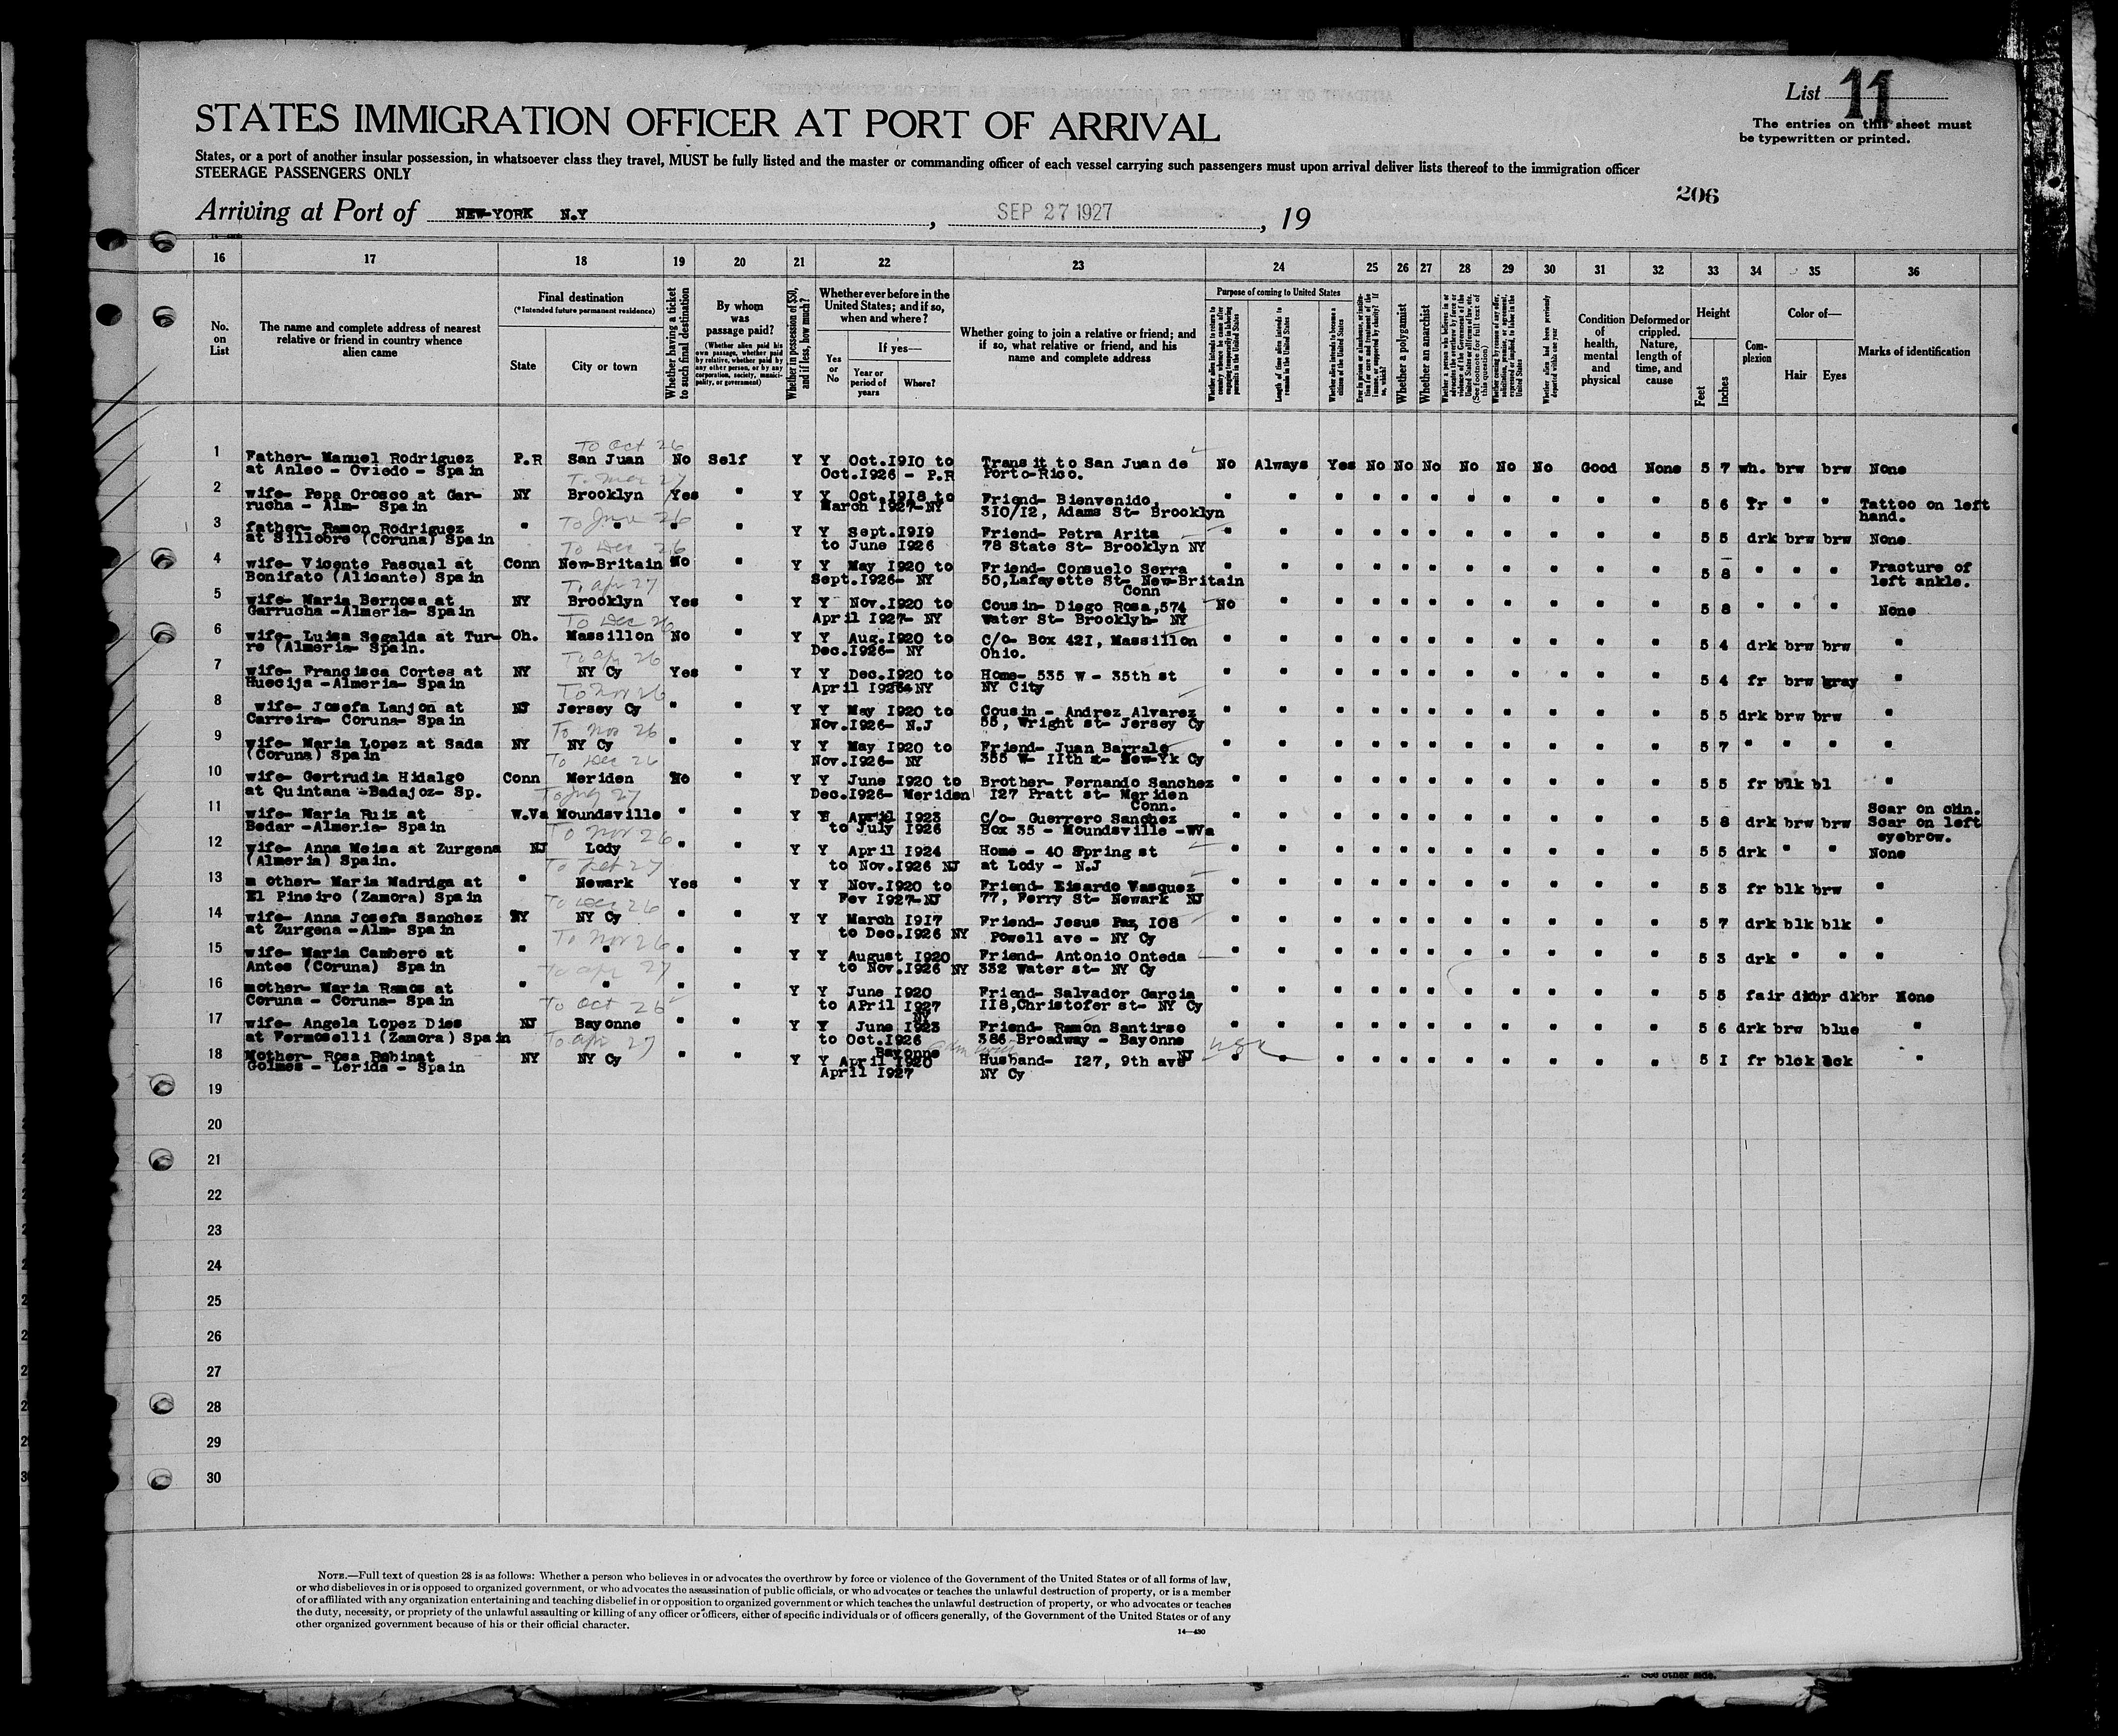 List 11
The entries on this sheet must
be typewritten or printed.
STATES IMMIGRATION OFFICER AT PORT OF ARRIVAL
States, or a port of another insular possession, in whatsoever class they travel, MUST be fully listed and the master or commanding officer of each vessel carrying such passengers must upon arrival deliver lists thereof to the immigration officer
STEERAGE PASSENGERS ONLY
206
Arriving at Port of NEW-YORK N.Y , SEP 27 1927 , 19
16 17 18 19 20 21 22 23 24 25 26 27 28 29 30 31 32 33 34 35 36
No. on List
The name and complete address of nearest relative or friend in country whence alien came
Final destination
(*Intended future permanent residence)
State
City or town
Whether having a ticket to such final destination
By whom was passage paid?
(Whether alien paid his own passage, whether paid by relative, whether paid by any other person, or by any corporation, society, municipality, or government)
Whether in possession of $50, and if less, how much?
Whether ever before in the United States; and if so, when and where?
If yes—
Yes or No
Year or period of years
Where?
Whether going to join a relative or friend; and if so, what relative or friend, and his name and complete address
Purpose of coming to United States
Length of time alien intends to remain in the United States
Whether alien intends to become a citizen of the United States
Whether a polygamist
Whether an anarchist
Whether alien had been previously deported within one year
Condition of health, mental and physical
Deformed or crippled. Nature, length of time, and cause
Height
Feet
Inches
Complexion
Color of—
Hair
Eyes
Marks of identification
To Oct 26
1 Father- Manuel Rodriguez P.R San Juan No Self Y Y Oct.I9I0 to Transit to San Juan de No Always Yes No No No No No No Good None 5 7 wh. brw brw None
at Anleo - Oviedo - Spain Oct.I926 - P.R Porto-Rico.
2 wife- Pepa Orosco at Gar- NY Brooklyn Yes " Y Y Oct.I9I8 to Friend- Bienvenido, " " " " " " " " " " " 5 6 fr " " Tattoo on left
rucha - Alm- Spain March I927-NY 3I0/I2, Adams St- Brooklyn hand.
To June 26
3 father- Ramon Rodriguez " " " " Y Y Sept.I9I9 Friend- Petra Arita " " " " " " " " " " " 5 5 drk brw brw None
at Sillobre (Coruna) Spain to June I926 78 State St- Brooklyn NY
To Dec 26
4 wife- Vicente Pascual at Conn New-Britain No " Y Y May I920 to Friend- Consuelo Serra " " " " " " " " " " " 5 8 " " " Fracture of
Bonifato (Alicante) Spain Sept.I926- NY 50,Lafayette St- New-Britain left ankle.
Conn
To Apr 27
5 wife- Maria Bernosa at NY Brooklyn Yes " Y Y Nov.I920 to Cousin- Diego Rosa,574 No " " " " " " " " " " 5 8 " " " None
Garrucha -Almeria- Spain April I927- NY Water St- Brooklyn- NY
To Dec 26
6 wife- Luisa Segalda at Tur- Oh. Massillon No " Y Y Aug.I920 to C/o- Box 42I, Massillon " " " " " " " " " " " 5 4 drk brw brw "
re (Almeria- Spain. Dec.I926- NY Ohio.
To Apr 26
7 wife- Francisca Cortes at NY NY Cy Yes " Y Y Dec.I920 to Home- 535 W - 35th st " " " " " " " " " " " 5 4 fr brw gray "
Huecija -Almeria- Spain April I926- NY NY City
To Nov 26
8 wife- Josefa Lanjon at NJ Jersey Cy " " Y Y May I920 to Cousin - Andrez Alvarez " " " " " " " " " " " 5 5 drk brw brw "
Carreira- Coruna- Spain Nov.I926- N.J 55, Wright st- Jersey Cy
To Nov 26
9 wife- Maria Lopez at Sada NY NY Cy " " Y Y May I920 to Friend- Juan Barralo " " " " " " " " " " " 5 7 " " " "
(Coruna) Spain Nov.I926- NY 355 W- IIth st- New-Yk Cy
To Dec 26
10 wife- Gertrudia Hidalgo Conn Meriden No " Y Y June I920 to Brother- Fernando Sanchez " " " " " " " " " " " 5 5 fr blk bl "
at Quintana -Badajoz- Sp. Dec.I926- Meriden I27 Pratt st- Meriden
Conn.
11 wife- Maria Ruiz at W.Va Moundsville " " Y Y April I923 C/o- Guerrero Sanchez " " " " " " " " " " " 5 8 drk brw brw Scar on chin.
Bedar -Almeria- Spain to July I926 Box 35 - Moundsville -WVa Scar on left
eyebrow.
To Nov 26
12 wife- Anna Meisa at Zurgena NJ Lody " " Y Y April I924 Home - 40 Spring st " " " " " " " " " " " 5 5 drk " " None
(Almeria) Spain. to Nov.I926 NJ at Lody - N.J
To Feb 27
13 m other- Maria Madruga at " Newark Yes " Y Y Nov.I920 to Friend- Eisardo Vasquez " " " " " " " " " " " 5 3 fr blk brw "
El Pineiro (Zamora) Spain Fev I927-NJ 77, Ferry St- Newark NJ
To Dec 26
14 wife- Anna Josefa Sanchez NY NY Cy " " Y Y March I9I7 Friend- Jesus Paz, I08 " " " " " " " " " " " 5 7 drk blk blk "
at Zurgena -Alm- Spain to Dec.I926 NY Powell ave - NY Cy
To Nov 26
15 wife- Maria Cambero at " " " " Y Y August I920 Friend- Antonio Onteda " " " " " " " " " " " 5 3 drk " " "
Antes (Coruna) Spain to Nov.I926 NY 332 Water st- NY Cy
To Apr 27
16 mother- Maria Ramos at " " " " Y Y June I920 Friend- Salvador Garcia " " " " " " " " " " " 5 5 fair dkbr dkbr None
Coruna - Coruna- Spain to April I927 II8,Christofer st- NY Cy
NY
To Oct 26
17 wife- Angela Lopez Dies NJ Bayonne " " Y Y June I923 Friend- Ramon Santirso " " " " " " " " " " " 5 6 drk brw blue "
at Fermoselli (Zamora) Spain to Oct.I926 386 Broadway - Bayonne
Bayonne NJ
To Apr 27
18 Mother- Rosa Robinat NY NY Cy " " Y Y April I920 Husband- I27, 9th ave " " " " " " " " " " " 5 I fr blck "
Golmes - Lerida - Spain April I927 NY Cy
19
20
21
22
23
24
25
26
27
28
29
30
NOTE.—Full text of question 28 is as follows: Whether a person who believes in or advocates the overthrow by force or violence of the Government of the United States or of all forms of law,
or who disbelieves in or is opposed to organized government, or who advocates the assassination of public officials, or who advocates or teaches the unlawful destruction of property, or is a member
of or affiliated with any organization entertaining and teaching disbelief in or opposition to organized government or which teaches the unlawful destruction of property, or who advocates or teaches
the duty, necessity, or propriety of the unlawful assaulting or killing of any officer or officers, either of specific individuals or of officers generally, of the Government of the United States or of any
other organized government because of his or their official character.
14—430
See other side.